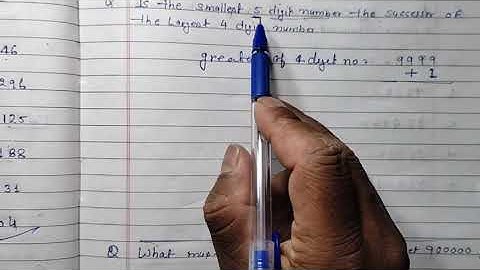 Q Is the smallest 5 digit number the successor of
the largest 4 digit number
greatest of 4 digit no:
9999
+ 1
46
296
125
188
31
04
Q What
900000